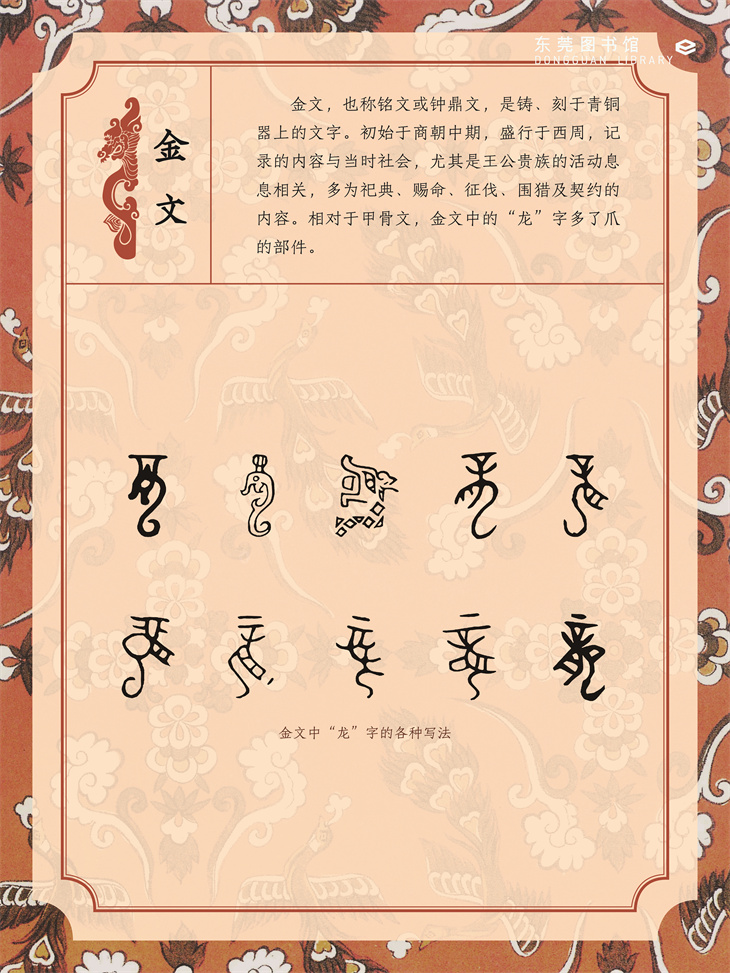 东莞图书馆
DONGGUAN LIBRARY
金文
金文，也称铭文或钟鼎文，是铸、刻于青铜
器上的文字。初始于商朝中期，盛行于西周，记
录的内容与当时社会，尤其是王公贵族的活动息
息相关，多为祀典、赐命、征伐、围猎及契约的
内容。相对于甲骨文，金文中的“龙”字多了爪
的部件。
金文中“龙”字的各种写法